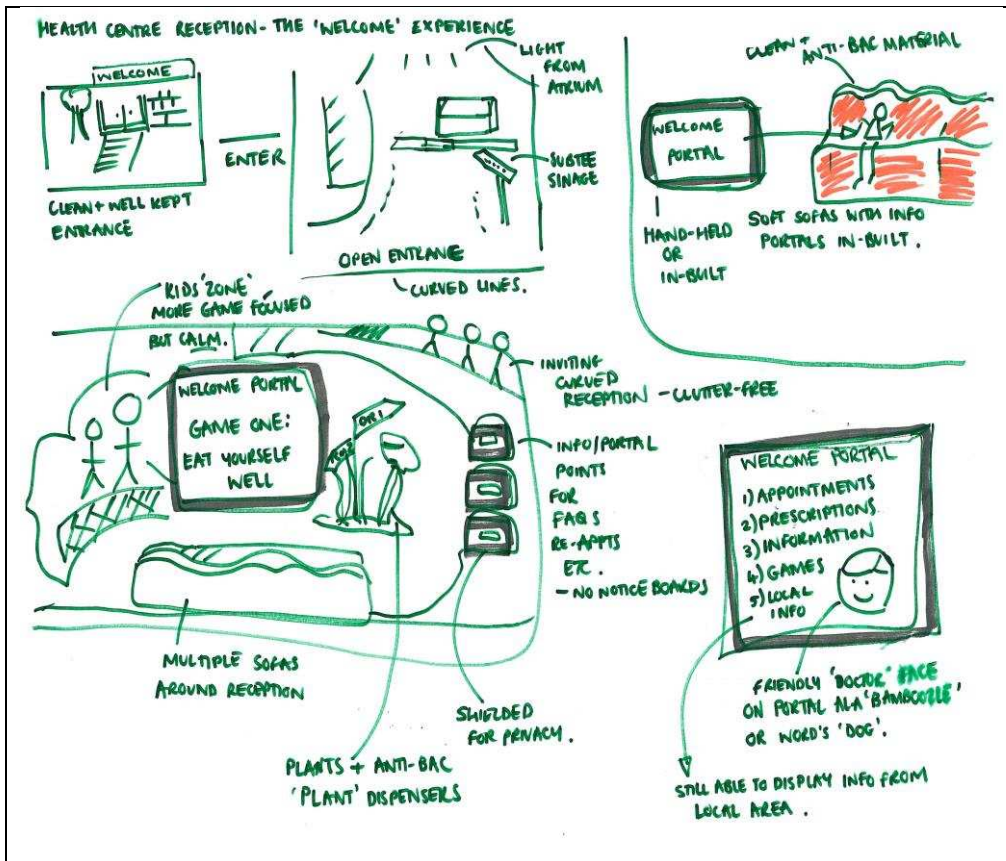 HEALTH CENTRE RECEPTION - THE 'WELCOME' EXPERIENCE
WELCOME
CLEAN + WELL KEPT
ENTRANCE
ENTER
LIGHT
FROM
ATRIUM
SUBTEE
SINAGE
OPEN ENTRANE
CURVED LINES.
CLEAN +
ANTI-BAC MATERIAL
WELCOME
PORTAL
HAND-HELD
OR
IN-BUILT
SOFT SOFAS WITH INFO
PORTALS IN-BUILT.
KIDS 'ZONE'
MORE GAME FOCUSED
BUT CALM.
WELCOME PORTAL
GAME ONE:
EAT YOURSELF
WELL
INVITING
CURVED
RECEPTION - CLUTTER-FREE
INFO/PORTAL
POINTS
FOR
FAQS
RE-APPTS
ETC.
- NO NOTICE BOARDS
MULTIPLE SOFAS
AROUND RECEPTION
SHIELDED
FOR PRIVACY.
PLANTS + ANTI-BAC
'PLANT' DISPENSERS
WELCOME PORTAL
1) APPOINTMENTS
2) PRESCRIPTIONS
3) INFORMATION
4) GAMES
5) LOCAL
INFO
FRIENDLY 'DOCTOR' FACE
ON PORTAL ALA 'BAMBOOZLE'
OR WORD'S 'DOG'.
STILL ABLE TO DISPLAY INFO FROM
LOCAL AREA.